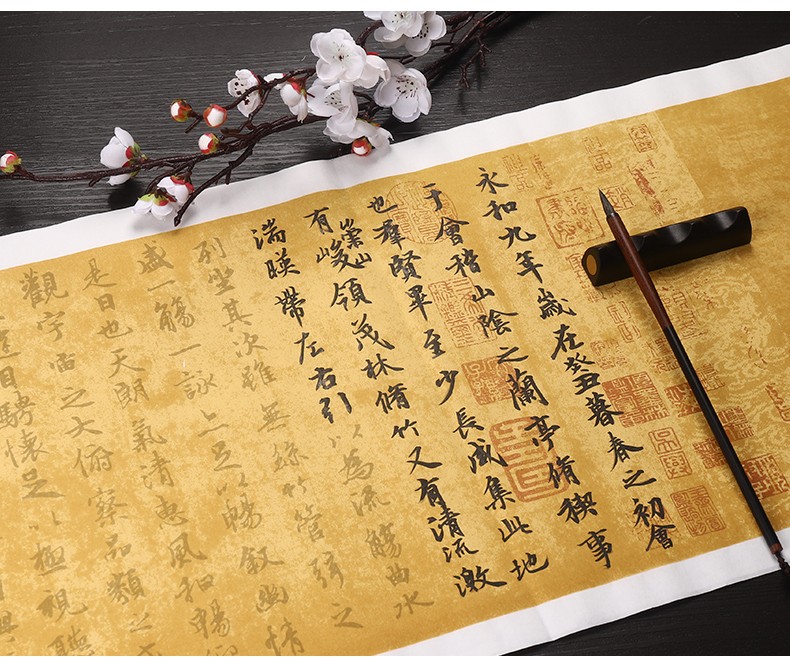 永和九年歲在癸丑暮春之初會
于會稽山陰之蘭亭脩稧事
也羣賢畢至少長咸集此地
有崇山峻領茂林脩竹又有清流激
湍暎帶左右引以為流觴曲水
列坐其次雖無絲竹管弦之
盛一觴一詠亦足以暢敘幽情
是日也天朗氣清惠風和暢仰
觀宇宙之大俯察品類之
目騁懷足以極視聽